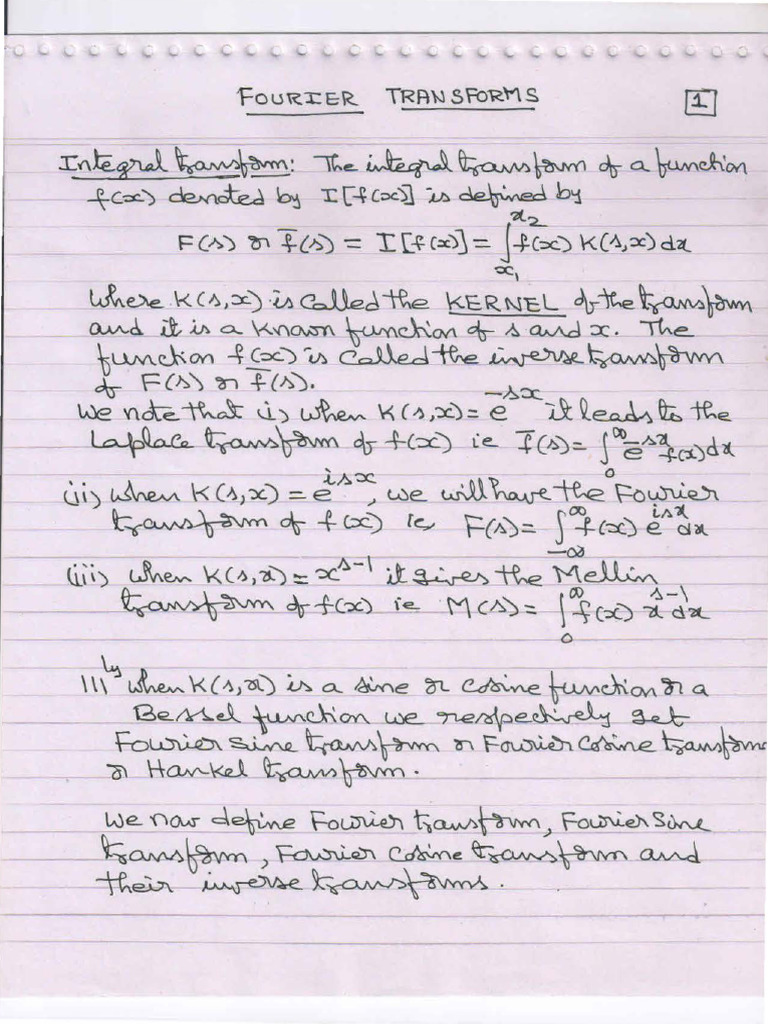 FOURIER TRANSFORMS 1
Integral transform: The integral transform of a function
f(x) denoted by I[f(x)] is defined by
F(s) or f̄(s) = I[f(x)] = ∫_{x₁}^{x₂} f(x) K(s,x) dx
where K(s,x) is called the KERNEL of the transform
and it is a known function of s and x. The
function f(x) is called the inverse transform
of F(s) or f̄(s).
We note that (i) when K(s,x) = e^{-sx} it leads to the
Laplace transform of f(x) ie f̄(s) = ∫_0^∞ e^{-sx} f(x) dx
(ii) when K(s,x) = e^{isx}, we will have the Fourier
transform of f(x) ie, F(s) = ∫_{-∞}^∞ f(x) e^{isx} dx
(iii) when K(s,x) = x^{s-1} it gives the Mellin
transform of f(x) ie M(s) = ∫_0^∞ f(x) x^{s-1} dx
|||ly when K(s,x) is a sine or cosine function or a
Bessel function we respectively get
Fourier sine transform or Fourier cosine transform
or Hankel transform.
We now define Fourier transform, Fourier Sine
transform, Fourier cosine transform and
their inverse transforms.